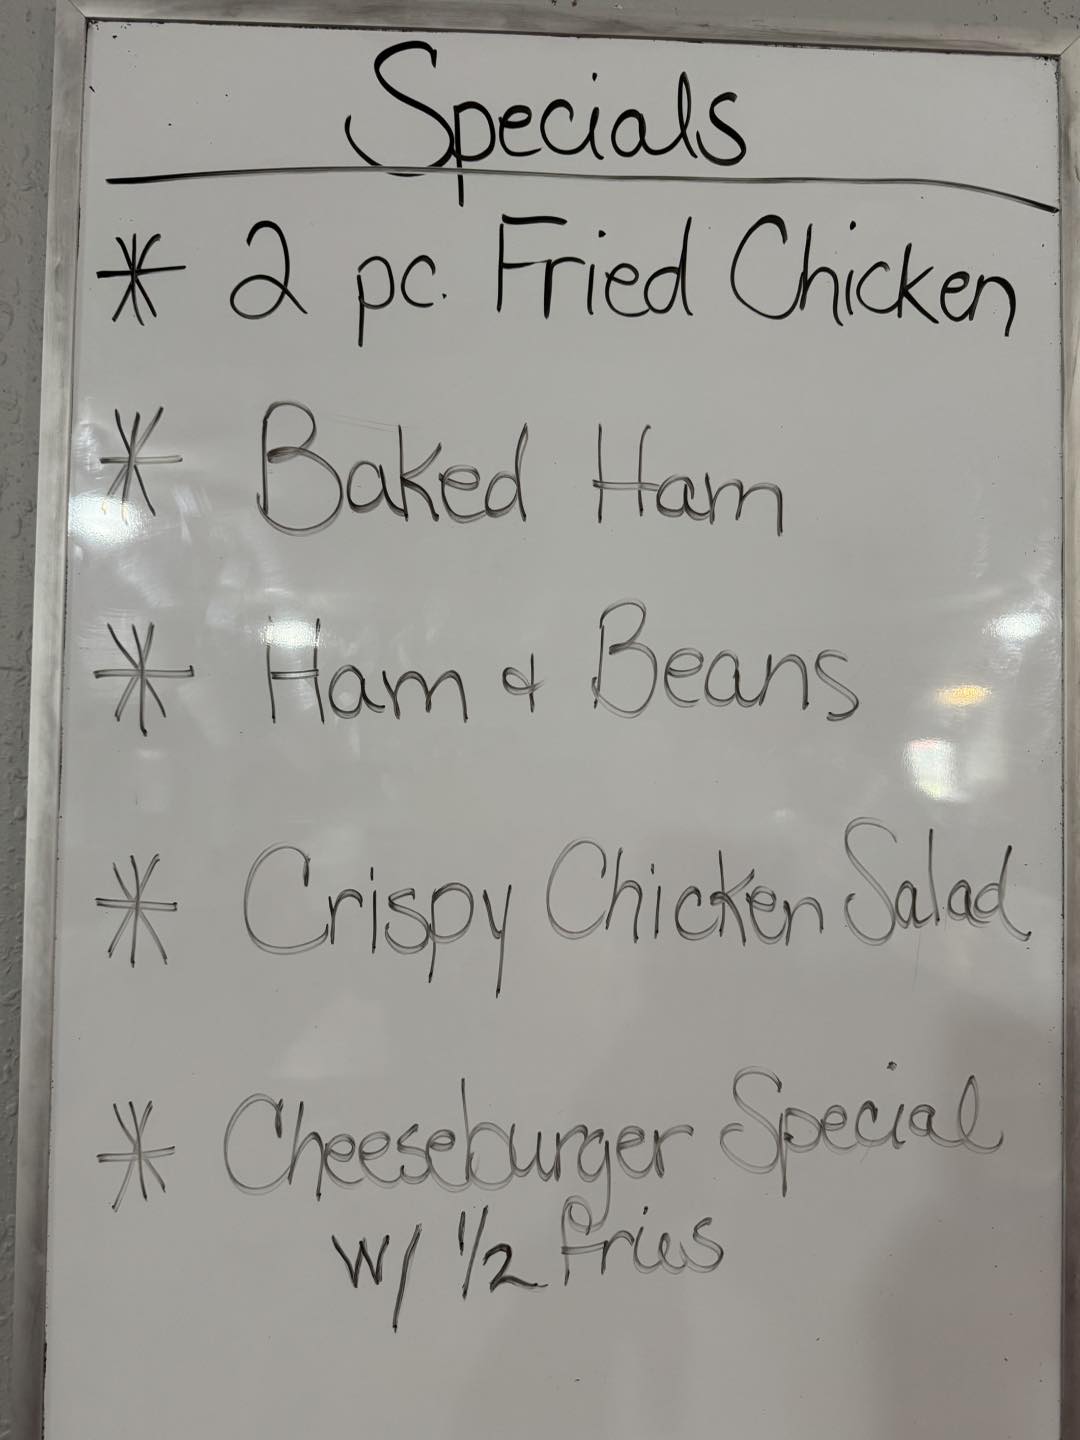 Specials
* 2 pc. Fried Chicken
* Baked Ham
* Ham & Beans
* Crispy Chicken Salad
* Cheeseburger Special
w/ 1/2 fries